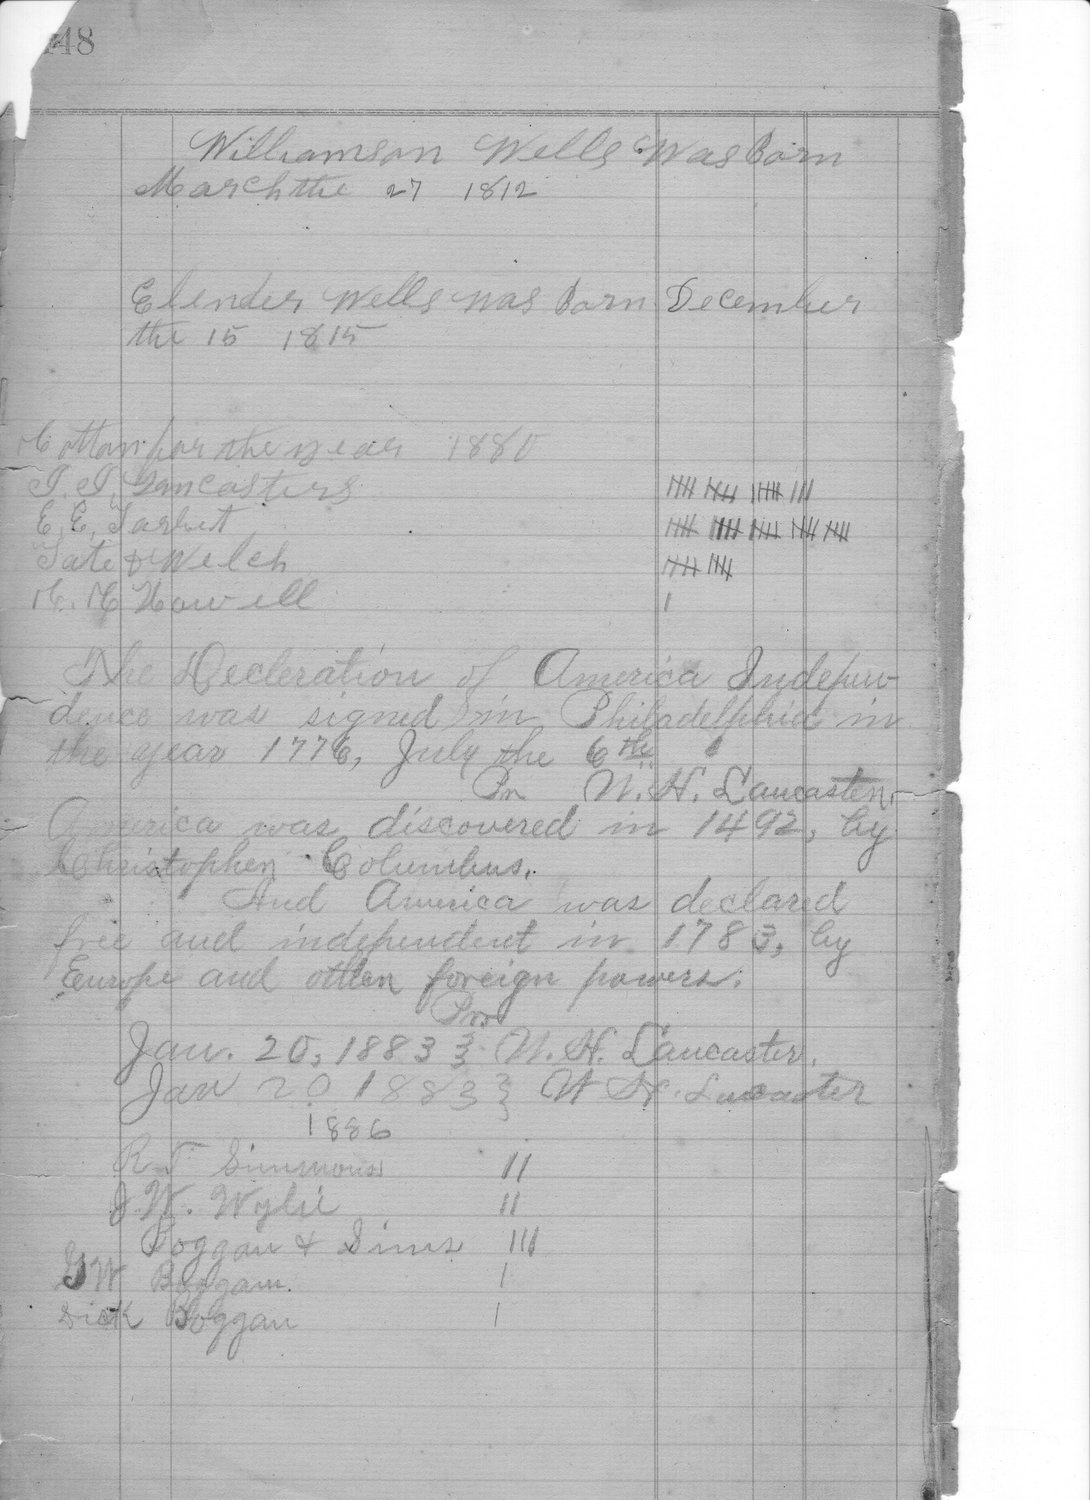 48
Williamson Wells Was Born
March the 27 1812
Elender Wells was Born December
the 15 1815
Cotton for the year 1880
Lancasters 𝍸 𝍸 𝍸 III
E. E. Tarbut 𝍸 𝍸 𝍸 𝍸 𝍸
Tate & Welch 𝍸 𝍸
Howell I
The Decleration of America Indepen-
dence was signed in Philadelphia in
the year 1776, July the 6th
Pr W. H. Lancaster.
America was discovered in 1492, by
Christopher Columbus.
And America was declared
free and independent in 1783, by
Europe and other foreign powers.
Pr
Jan. 20, 1883 } W. H. Lancaster.
Jan 20 1883 } W H. Lancaster
1886
R T Simmons II
J. W. Wylie II
Boggan & Sims III
G W Boggan. I
Dick Boggan I